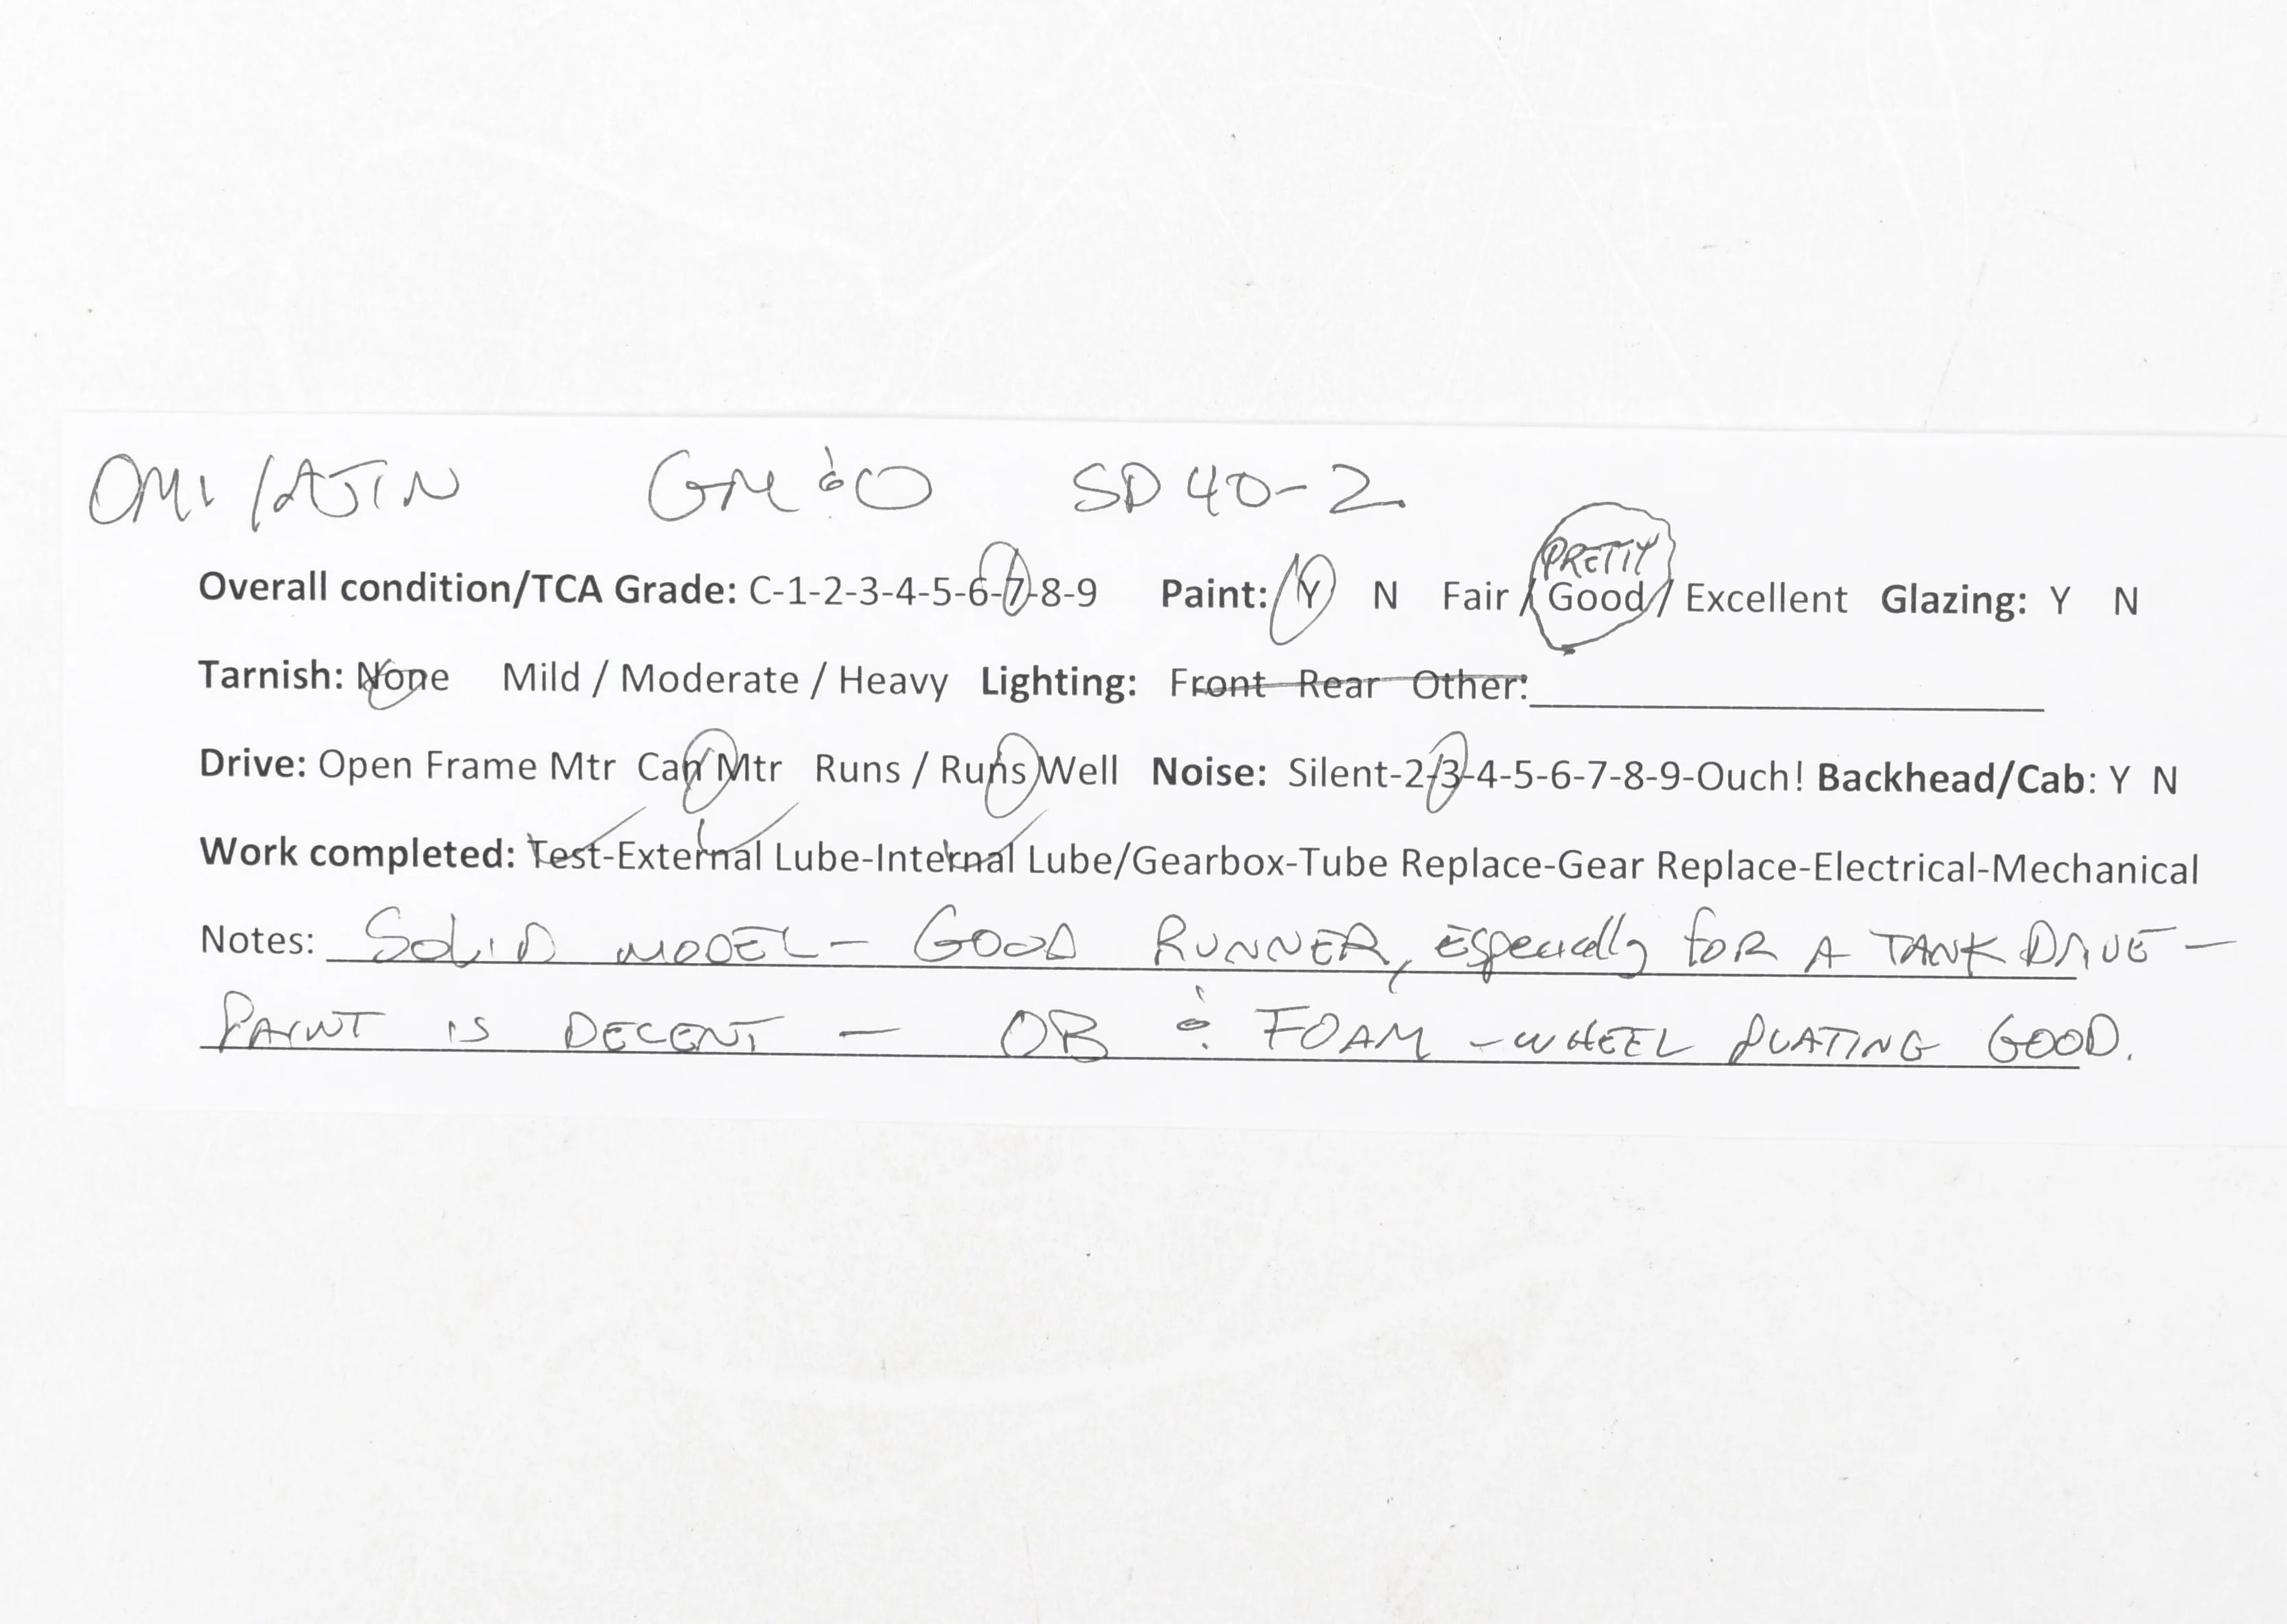 OMI/AJIN GM&O SD40-2
PRETTY
Overall condition/TCA Grade: C-1-2-3-4-5-6-7-8-9 Paint: Y N Fair / Good / Excellent Glazing: Y N
Tarnish: None Mild / Moderate / Heavy Lighting: Front Rear Other:
Drive: Open Frame Mtr Can Mtr Runs / Runs Well Noise: Silent-2-3-4-5-6-7-8-9-Ouch! Backhead/Cab: Y N
Work completed: Test-External Lube-Internal Lube/Gearbox-Tube Replace-Gear Replace-Electrical-Mechanical
Notes: SOLID MODEL - GOOD RUNNER, Especially for A TANK DRIVE -
PAINT IS DECENT - OB & FOAM - WHEEL PLATING GOOD.